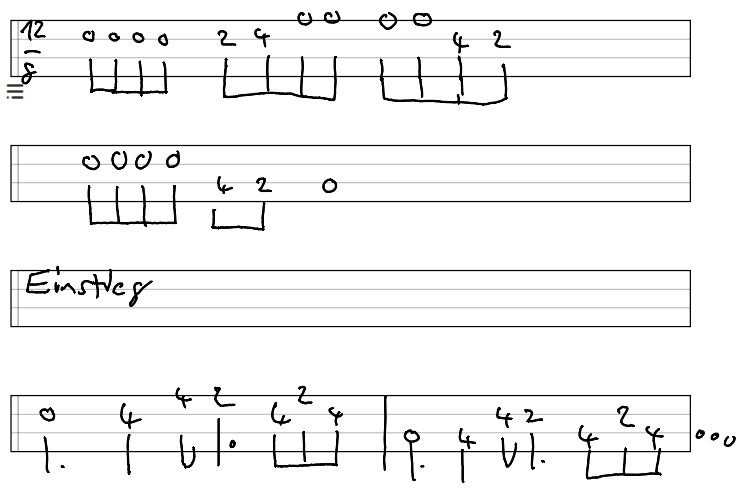 12
8
0 0 0 0 2 4 0 0 0 0 4 2
0 0 0 0 4 2 0
Einstieg
0 4 4 2 4 2 4 0 4 4 2 4 2 4 ...